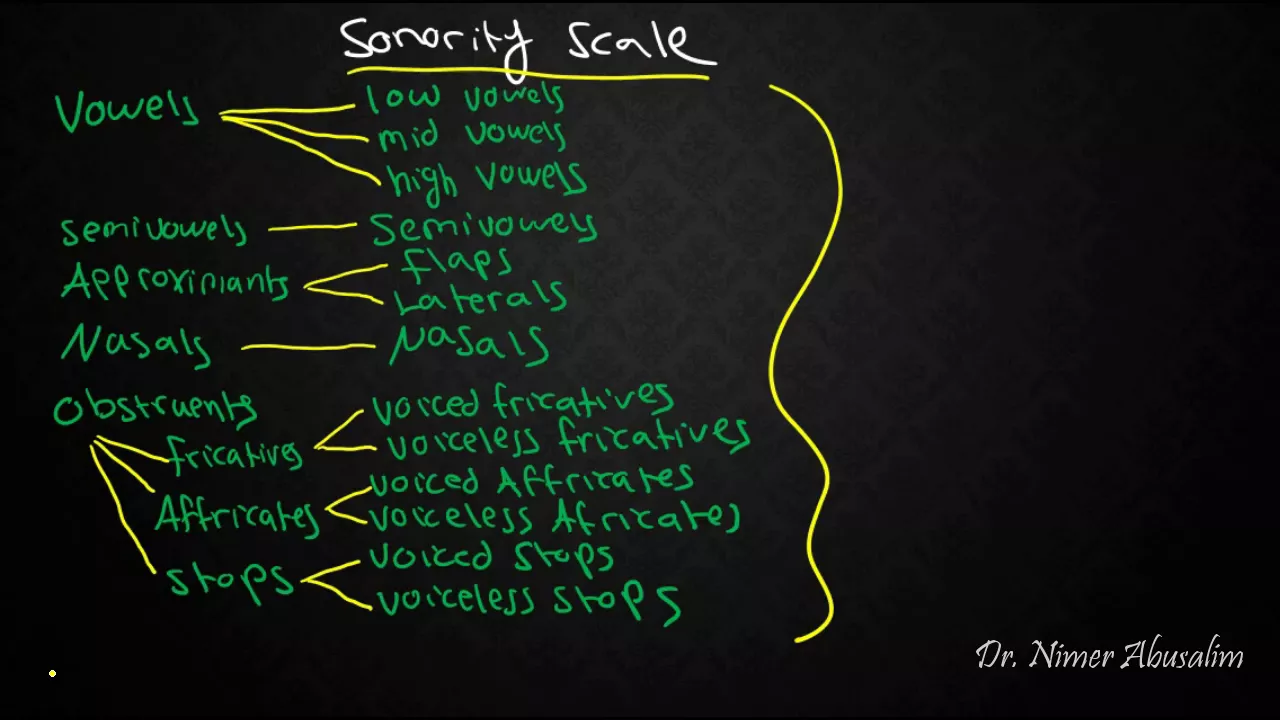 Sonority Scale
Vowels low vowels
mid vowels
high vowels
semivowels Semivowels
Approximants flaps
Laterals
Nasals Nasals
Obstruents voiced fricatives
fricatives voiceless fricatives
voiced Affricates
Affricates voiceless Africates
voiced stops
stops voiceless stops
Dr. Nimer Abusalim